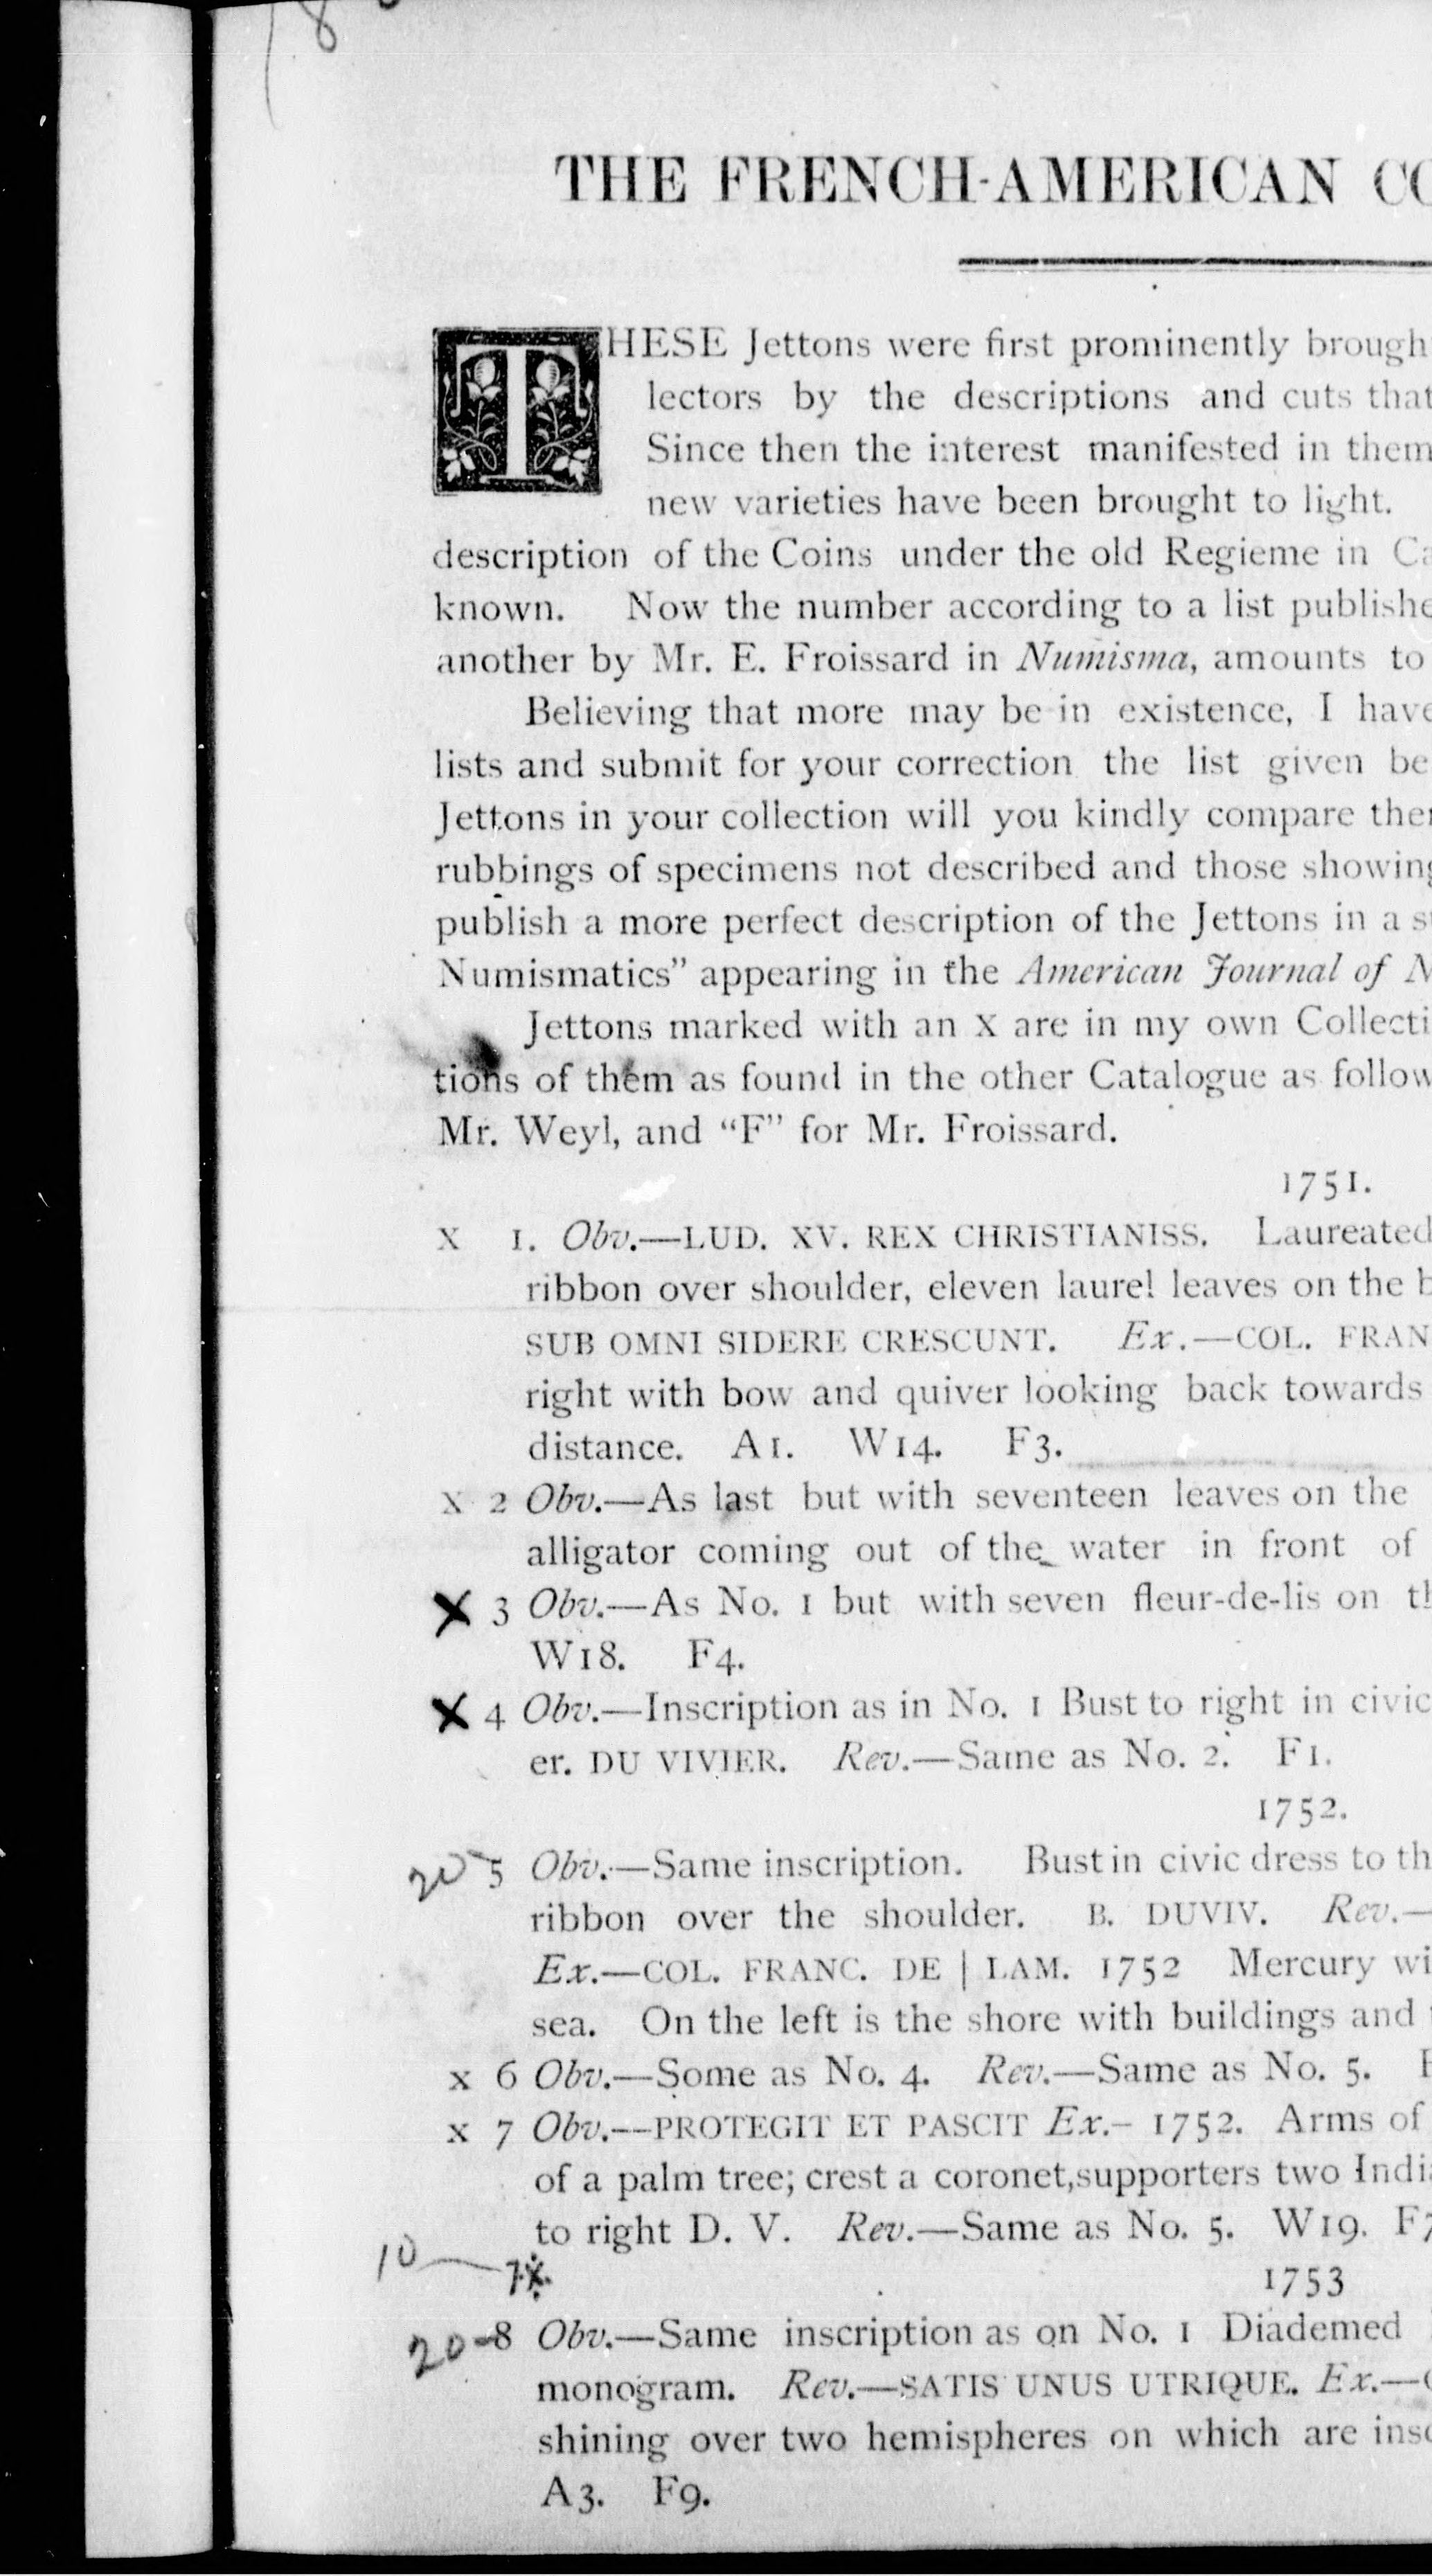 THE FRENCH-AMERICAN
THESE Jettons were first prominently brough
lectors by the descriptions and cuts that
Since then the interest manifested in them
new varieties have been brought to light.
description of the Coins under the old Regieme in
known. Now the number according to a list publishe
another by Mr. E. Froissard in Numisma, amounts to
Believing that more may be in existence, I have
lists and submit for your correction the list given be
Jettons in your collection will you kindly compare
rubbings of specimens not described and those showing
publish a more perfect description of the Jettons in a
Numismatics" appearing in the American Journal of N
Jettons marked with an X are in my own Collecti
tions of them as found in the other Catalogue as follow
Mr. Weyl, and "F" for Mr. Froissard.
1751.
X 1. Obv.—LUD. XV. REX CHRISTIANISS. Laureated
ribbon over shoulder, eleven laurel leaves on the
SUB OMNI SIDERE CRESCUNT. Ex.—COL. FRAN
right with bow and quiver looking back towards
distance. A1. W14. F3.
X 2 Obv.—As last but with seventeen leaves on the
alligator coming out of the water in front of
X 3 Obv.—As No. 1 but with seven fleur-de-lis on
W18. F4.
X 4 Obv.—Inscription as in No. 1 Bust to right in civic
er. DU VIVIER. Rev.—Same as No. 2. F1.
1752.
20 5 Obv.—Same inscription. Bust in civic dress to th
ribbon over the shoulder. B. DUVIV. Rev.—
Ex.—COL. FRANC. DE | LAM. 1752 Mercury wi
sea. On the left is the shore with buildings and
x 6 Obv.—Some as No. 4. Rev.—Same as No. 5.
x 7 Obv.—PROTEGIT ET PASCIT Ex.– 1752. Arms of
of a palm tree; crest a coronet,supporters two Indi
to right D. V. Rev.—Same as No. 5. W19. F7
10 — 7x.
1753
20-8 Obv.—Same inscription as on No. 1 Diademed
monogram. Rev.—SATIS UNUS UTRIQUE. Ex.—
shining over two hemispheres on which are ins
A3. F9.